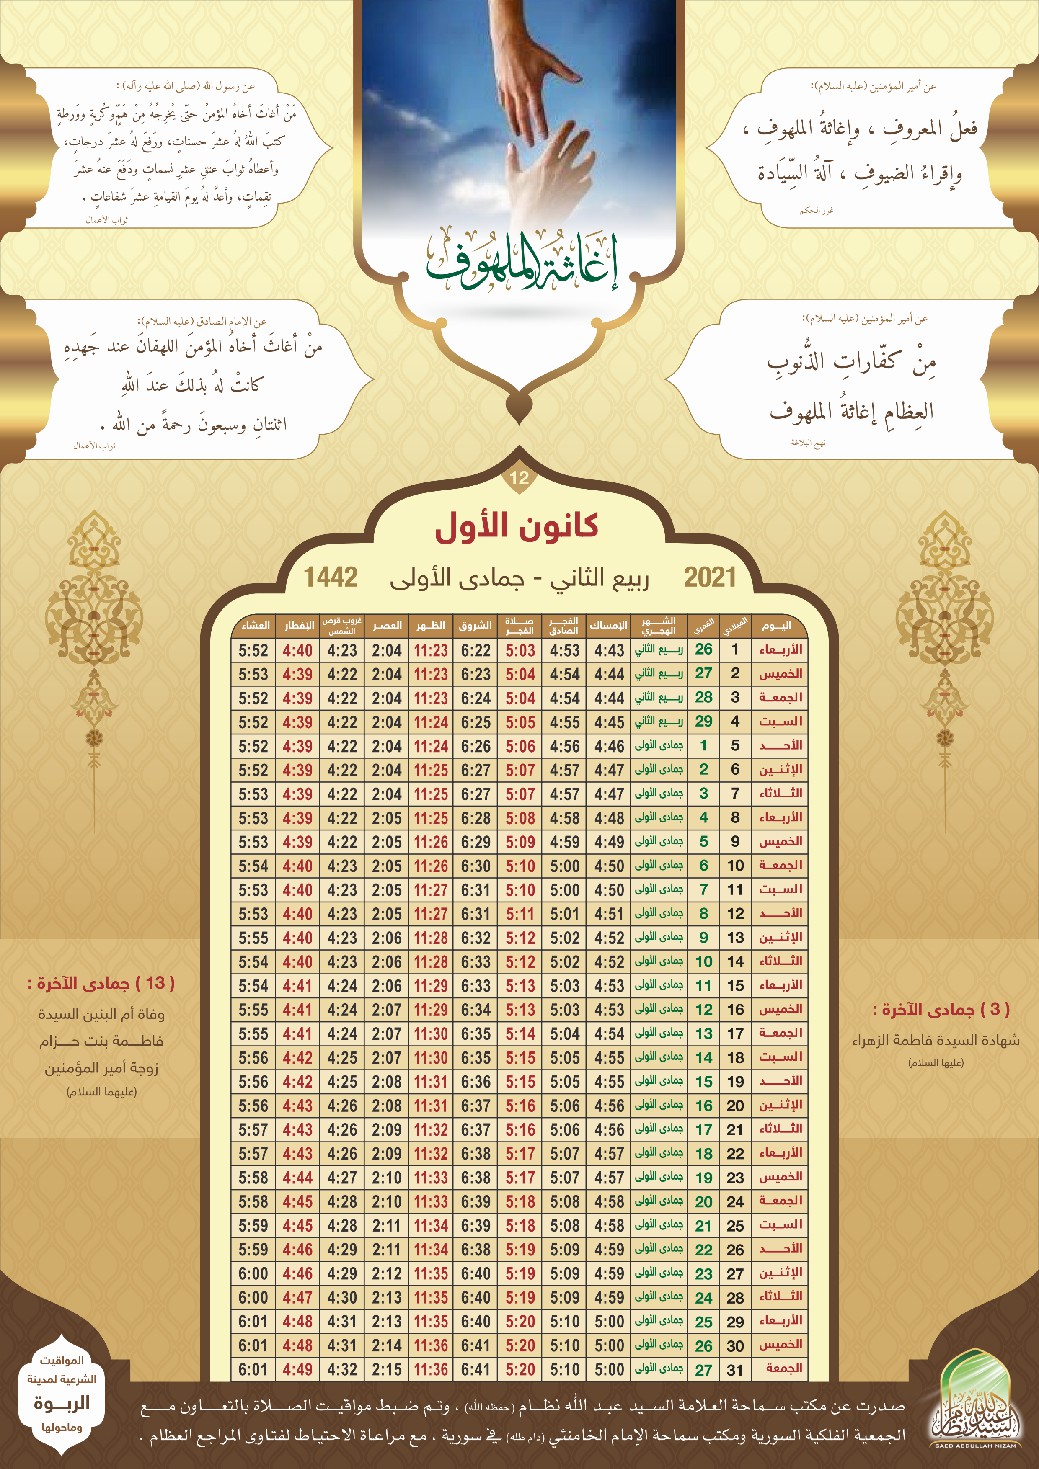 إغاثة الملهوف
عن أمير المؤمنين (عليه السلام):
فعلُ المعروفِ ، وإغاثةُ الملهوفِ ،
وإقراءُ الضيوفِ ، آلةُ السِّيَادة
غرر الحكم
عن رسول الله (صلى الله عليه وآله) :
مَنْ أغاثَ أخاهُ المؤمنَ حتّى يُخرِجُهُ مِنْ هَمٍّ وكُربةٍ وورطةٍ
كتبَ اللهُ لهُ عشرَ حسناتٍ، ورَفَعَ لهُ عشرَ درجاتٍ،
وأعطاهُ ثوابَ عتقِ عشرِ نسماتٍ ودَفَعَ عنهُ عشرَ
نقِماتٍ، وأعدَّ لهُ يومَ القيامةِ عشرَ شفاعاتٍ .
ثواب الأعمال
عن أمير المؤمنين (عليه السلام):
مِنْ كفّاراتِ الذُّنوبِ
العِظامِ إغاثةُ الملهوف
نهج البلاغة
عن الامام الصادق (عليه السلام):
منْ أغاثَ أخاهُ المؤمنَ اللهفانَ عند جَهدِهِ
كانتْ لهُ بذلكَ عندَ اللهِ
اثنتانِ وسبعونَ رحمةً من الله .
ثواب الأعمال
12
كانون الأول
2021 ربيع الثاني - جمادى الأولى 1442
اليوم الميلادي القمري الشهر الهجري الإمساك الفجر الصادق صلاة الفجر الشروق الظهر العصر غروب قرص الشمس الإفطار العشاء
الأربعاء 1 26 ربيع الثاني 4:43 4:53 5:03 6:22 11:23 2:04 4:23 4:40 5:52
الخميس 2 27 ربيع الثاني 4:44 4:54 5:04 6:23 11:23 2:04 4:22 4:39 5:53
الجمعة 3 28 ربيع الثاني 4:44 4:54 5:04 6:24 11:23 2:04 4:22 4:39 5:52
السبت 4 29 ربيع الثاني 4:45 4:55 5:05 6:25 11:24 2:04 4:22 4:39 5:52
الأحد 5 1 جمادى الأولى 4:46 4:56 5:06 6:26 11:24 2:04 4:22 4:39 5:52
الإثنين 6 2 جمادى الأولى 4:47 4:57 5:07 6:27 11:25 2:04 4:22 4:39 5:52
الثلاثاء 7 3 جمادى الأولى 4:47 4:57 5:07 6:27 11:25 2:04 4:22 4:39 5:53
الأربعاء 8 4 جمادى الأولى 4:48 4:58 5:08 6:28 11:25 2:05 4:22 4:39 5:53
الخميس 9 5 جمادى الأولى 4:49 4:59 5:09 6:29 11:26 2:05 4:22 4:39 5:53
الجمعة 10 6 جمادى الأولى 4:50 5:00 5:10 6:30 11:26 2:05 4:23 4:40 5:54
السبت 11 7 جمادى الأولى 4:50 5:00 5:10 6:31 11:27 2:05 4:23 4:40 5:53
الأحد 12 8 جمادى الأولى 4:51 5:01 5:11 6:31 11:27 2:05 4:23 4:40 5:53
الإثنين 13 9 جمادى الأولى 4:52 5:02 5:12 6:32 11:28 2:06 4:23 4:40 5:55
الثلاثاء 14 10 جمادى الأولى 4:52 5:02 5:12 6:33 11:28 2:06 4:23 4:40 5:54
الأربعاء 15 11 جمادى الأولى 4:53 5:03 5:13 6:33 11:29 2:06 4:24 4:41 5:54
الخميس 16 12 جمادى الأولى 4:53 5:03 5:13 6:34 11:29 2:07 4:24 4:41 5:55
الجمعة 17 13 جمادى الأولى 4:54 5:04 5:14 6:35 11:30 2:07 4:24 4:41 5:55
السبت 18 14 جمادى الأولى 4:55 5:05 5:15 6:35 11:30 2:07 4:25 4:42 5:56
الأحد 19 15 جمادى الأولى 4:55 5:05 5:15 6:36 11:31 2:08 4:25 4:42 5:56
الإثنين 20 16 جمادى الأولى 4:56 5:06 5:16 6:37 11:31 2:08 4:26 4:43 5:56
الثلاثاء 21 17 جمادى الأولى 4:56 5:06 5:16 6:37 11:32 2:09 4:26 4:43 5:57
الأربعاء 22 18 جمادى الأولى 4:57 5:07 5:17 6:38 11:32 2:09 4:26 4:43 5:57
الخميس 23 19 جمادى الأولى 4:57 5:07 5:17 6:38 11:33 2:10 4:27 4:44 5:58
الجمعة 24 20 جمادى الأولى 4:58 5:08 5:18 6:39 11:33 2:10 4:28 4:45 5:58
السبت 25 21 جمادى الأولى 4:58 5:08 5:18 6:39 11:34 2:11 4:28 4:45 5:59
الأحد 26 22 جمادى الأولى 4:59 5:09 5:19 6:38 11:34 2:11 4:29 4:46 5:59
الإثنين 27 23 جمادى الأولى 4:59 5:09 5:19 6:40 11:35 2:12 4:29 4:46 6:00
الثلاثاء 28 24 جمادى الأولى 4:59 5:09 5:19 6:40 11:35 2:13 4:30 4:47 6:00
الأربعاء 29 25 جمادى الأولى 5:00 5:10 5:20 6:40 11:35 2:13 4:31 4:48 6:01
الخميس 30 26 جمادى الأولى 5:00 5:10 5:20 6:41 11:36 2:14 4:31 4:48 6:01
الجمعة 31 27 جمادى الأولى 5:00 5:10 5:20 6:41 11:36 2:15 4:32 4:49 6:01
( 3 ) جمادى الآخرة :
شهادة السيدة فاطمة الزهراء
(عليها السلام)
( 13 ) جمادى الآخرة :
وفاة أم البنين السيدة
فاطمة بنت حزام
زوجة أمير المؤمنين
(عليهما السلام)
صدرت عن مكتب سماحة العلامة السيد عبد الله نظام (حفظه الله) ، وتم ضبط مواقيت الصلاة بالتعاون مع
الجمعية الفلكية السورية ومكتب سماحة الإمام الخامنئي (دام ظله) في سورية ، مع مراعاة الاحتياط لفتاوى المراجع العظام .
المواقيت
الشرعية لمدينة
الربوة
وماحولها
السيد عبد الله نظام
SAED ABDULLAH NIZAM